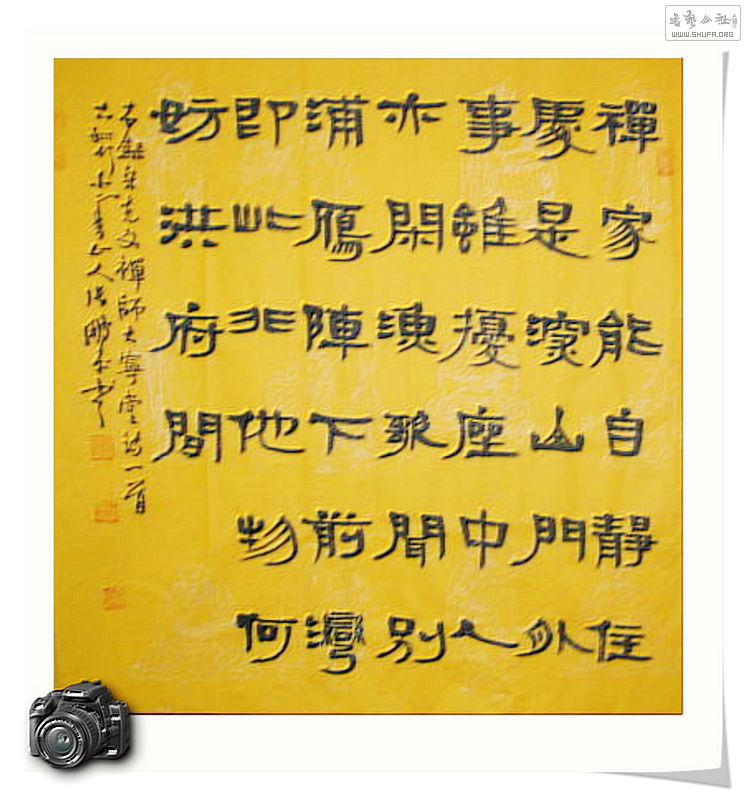 禪家能自靜住
處是深山門外
事雖擾座中人
亦閑漁歌聞別
浦雁陣下前灣
即此非他物何
妨洪府間
克文禪師大寧堂詩一首
書藝公社
WWW.SHUFA.ORG